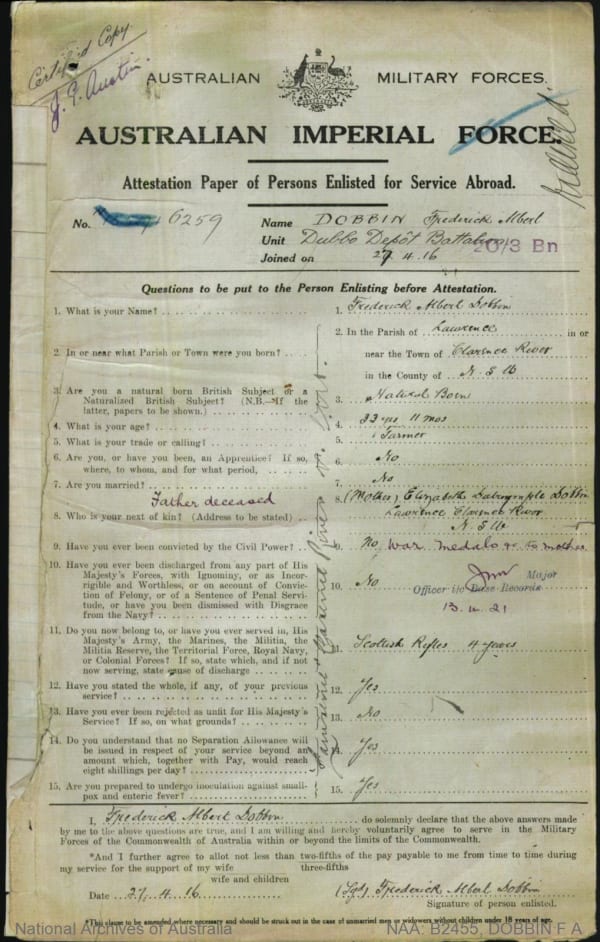 Certified Copy
J. E. Austin.
AUSTRALIAN MILITARY FORCES.
AUSTRALIAN IMPERIAL FORCE.
Attestation Paper of Persons Enlisted for Service Abroad.
No. 6259 Name DOBBIN Frederick Albert
Unit Dubbo Depôt Battalion 20/3 Bn
Joined on 27.4.16
Questions to be put to the Person Enlisting before Attestation.
1. What is your Name? 1. Frederick Albert Dobbin
2. In or near what Parish or Town were you born? 2. In the Parish of Lawrence in or
near the Town of Clarence River
in the County of N.S.W.
3. Are you a natural born British Subject or a
Naturalized British Subject? (N.B.—If the
latter, papers to be shown.) 3. Natural Born
4. What is your age? 4. 11 mos
5. What is your trade or calling? 5. Farmer
6. Are you, or have you been, an Apprentice? If so,
where, to whom, and for what period, 6. No
7. Are you married? 7. No
Father deceased
8. Who is your next of kin? (Address to be stated) 8. (Mother) Elizabeth Dalrymple Dobbin
Lawrence Clarence River
N.S.W.
9. Have you ever been convicted by the Civil Power? 9. No
War medals to mother
10. Have you ever been discharged from any part of His
Majesty's Forces, with Ignominy, or as Incor-
rigible and Worthless, or on account of Convic-
tion of Felony, or of a Sentence of Penal Servi-
tude, or have you been dismissed with Disgrace
from the Navy? 10. No
Major
Officer i/c Base Records
11. Do you now belong to, or have you ever served in, His
Majesty's Army, the Marines, the Militia, the
Militia Reserve, the Territorial Force, Royal Navy,
or Colonial Forces? If so, state which, and if not
now serving, state cause of discharge 11. Scottish Rifles 4 years
12. Have you stated the whole, if any, of your previous
service? 12. Yes
13. Have you ever been rejected as unfit for His Majesty's
Service? If so, on what grounds? 13. No
14. Do you understand that no Separation Allowance will
be issued in respect of your service beyond an
amount which, together with Pay, would reach
eight shillings per day? 14. Yes
15. Are you prepared to undergo inoculation against small-
pox and enteric fever? 15. Yes
I, Frederick Albert Dobbin do solemnly declare that the above answers made
by me to the above questions are true, and I am willing and hereby voluntarily agree to serve in the Military
Forces of the Commonwealth of Australia within or beyond the limits of the Commonwealth.
*And I further agree to allot not less than two-fifths of the pay payable to me from time to time during
three-fifths
my service for the support of my wife
wife and children
Date 27.4.16 (Sgd) Frederick Albert Dobbin
Signature of person enlisted.
*This clause to be amended where necessary and should be struck out in the case of unmarried men or widowers without children under 18 years of age.
National Archives of Australia NAA: B2455, DOBBIN F A